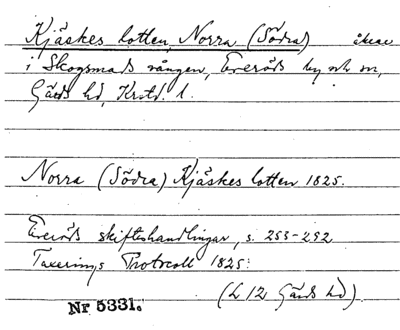 Kjäskes lotten, Norra (Södra) åkrar
i Skogsmads vången, Everöds by och sn,
Gärds hd, Krstd. l.
Norra (Södra) Kjäskes lotten 1825.
Everöds skifteshandlingar, s. 253-292
Taxerings Protocoll 1825:
(L 12 Gärds hd)
Nr 5331.